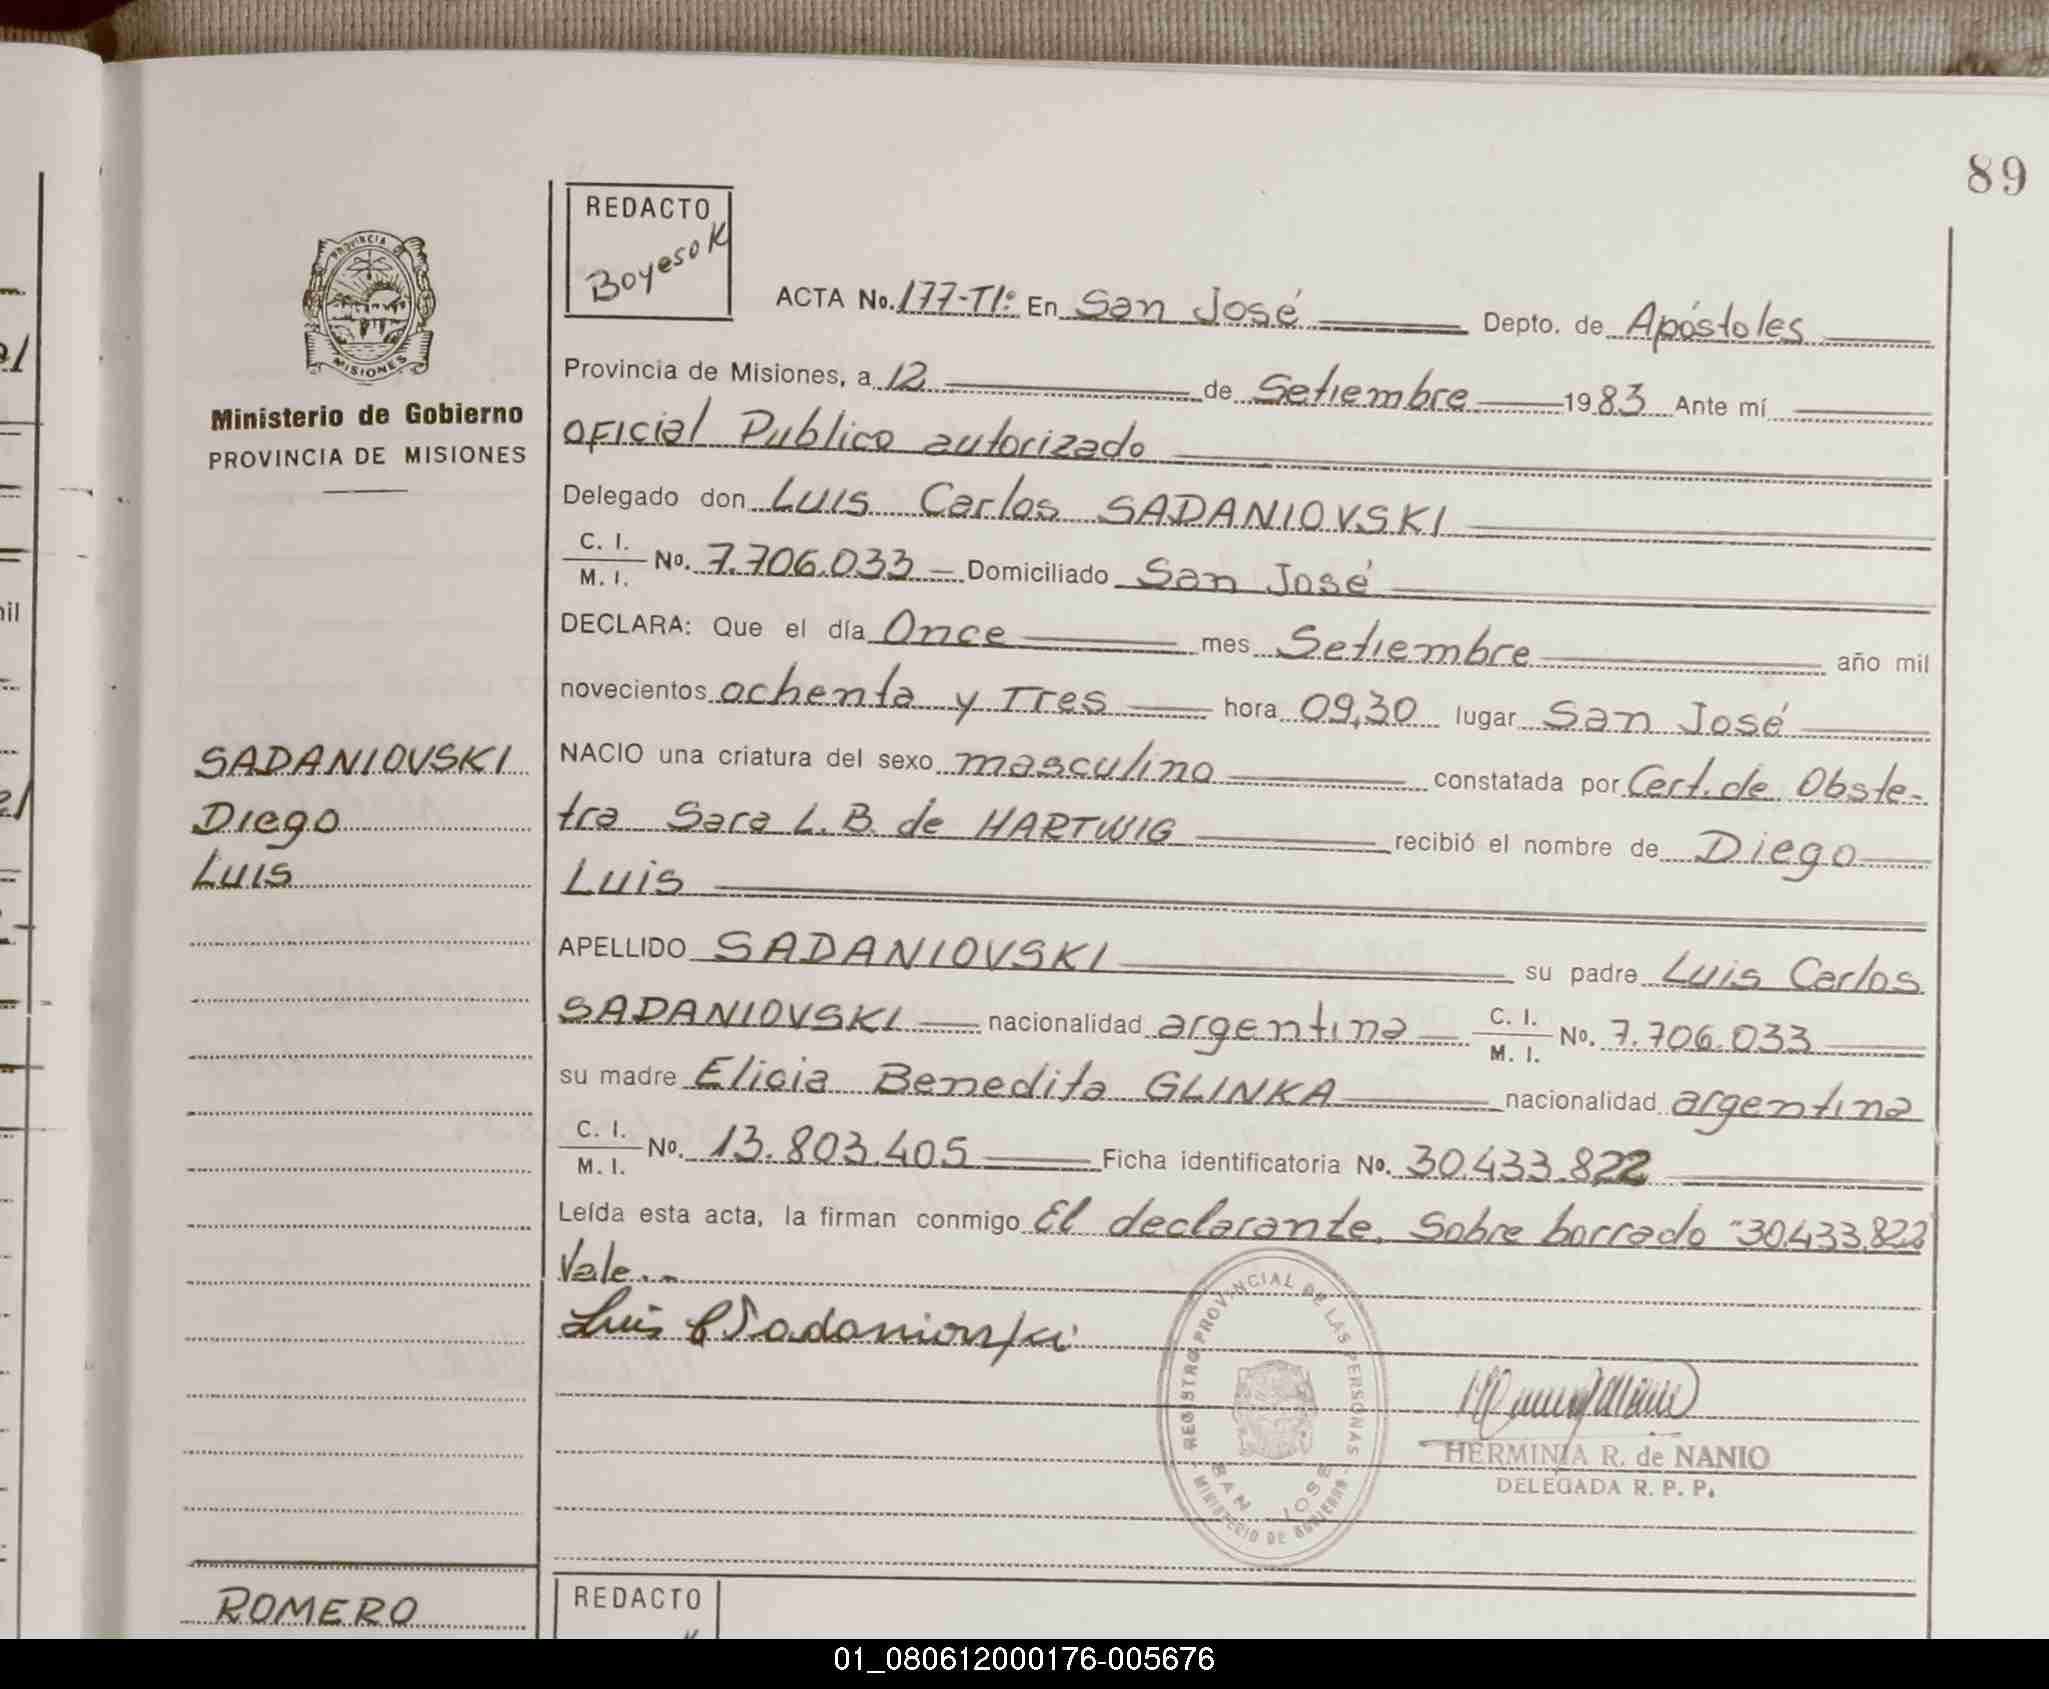 89
REDACTO
BoyesoK
PROVINCIA DE
MISIONES
Ministerio de Gobierno
PROVINCIA DE MISIONES
ACTA No. 177-T1º En San José Depto. de Apóstoles
Provincia de Misiones, a 12 de Setiembre 1983 Ante mí
OFICIAL Publico autorizado
Delegado don Luis Carlos SADANIOVSKI
C. I.
M. I. No. 7.706.033 - Domiciliado San José
DECLARA: Que el día Once mes Setiembre año mil
novecientos ochenta y Tres hora 09,30 lugar San José
NACIO una criatura del sexo masculino constatada por Cert. de Obste-
tra Sara L. B. de HARTWIG recibió el nombre de Diego
Luis
SADANIOVSKI
Diego
Luis
APELLIDO SADANIOVSKI su padre Luis Carlos
SADANIOVSKI nacionalidad argentina C. I.
M. I. No. 7.706.033
su madre Elicia Benedita GLINKA nacionalidad argentina
C. I.
M. I. No. 13.803.405 Ficha identificatoria No. 30.433.822
Leída esta acta, la firman conmigo El declarante. Sobre borrado "30.433.822
Vale.-
Luis C Sadaniovski
REGISTRO PROVINCIAL DE LAS PERSONAS
SAN JOSE
MINISTERIO DE GOBIERNO
HERMINIA R. de NANIO
DELEGADA R. P. P.
ROMERO
REDACTO
01_080612000176-005676